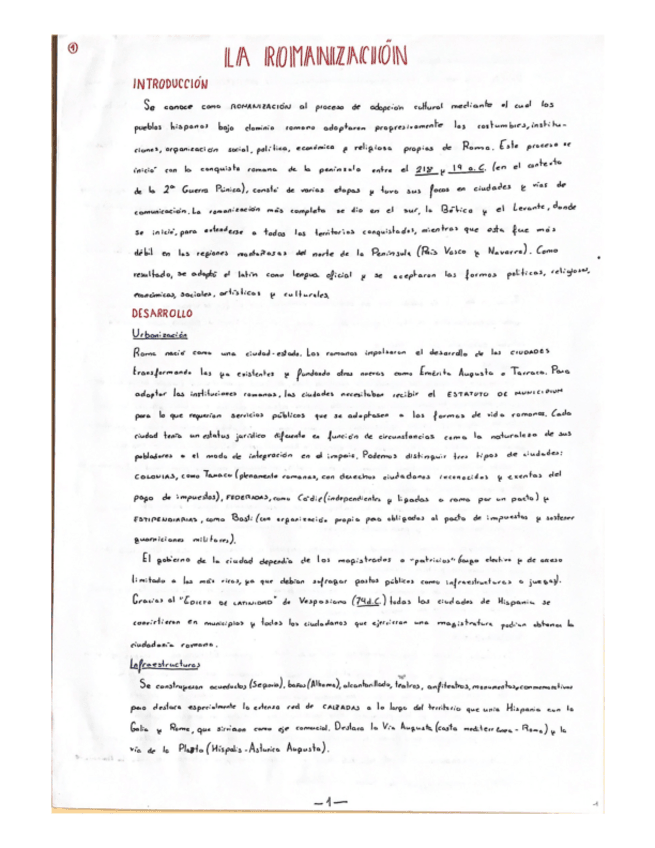 1
LA ROMANIZACIÓN
INTRODUCCIÓN
Se conoce como ROMANIZACIÓN al proceso de adopción cultural mediante el cual los
pueblos hispanos bajo dominio romano adoptaron progresivamente las costumbres, institu-
ciones, organización social, política, económica y religiosa propias de Roma. Este proceso se
inició con la conquista romana de la península entre el 218 y 19 a.C. (en el contexto
de la 2ª Guerra Púnica), constó de varias etapas y tuvo sus focos en ciudades y vías de
comunicación. La romanización más completa se dio en el sur, la Bética y el Levante, donde
se inició, para extenderse a todos los territorios conquistados, mientras que esta fue más
débil en las regiones montañosas del norte de la Península (País Vasco y Navarra). Como
resultado, se adoptó el latín como lengua oficial y se aceptaron las formas políticas, religiosas,
económicas, sociales, artísticas y culturales.
DESARROLLO
Urbanización
Roma nació como una ciudad-estado. Los romanos impulsaron el desarrollo de las CIUDADES
transformando las ya existentes y fundando otras nuevas como Emérita Augusta o Tarraco. Para
adoptar las instituciones romanas, las ciudades necesitaban recibir el ESTATUTO DE MUNICIPIUM
para lo que requerían servicios públicos que se adaptasen a las formas de vida romanas. Cada
ciudad tenía un estatus jurídico diferente en función de circunstancias como la naturaleza de sus
pobladores o el modo de integración en el imperio. Podemos distinguir tres tipos de ciudades:
COLONIAS, como Tarraco (plenamente romanas, con derechos ciudadanos reconocidos y exentas del
pago de impuestos), FEDERADAS, como Cádiz (independientes y ligadas a roma por un pacto) y
ESTIPENDIARIAS, como Basti (con organización propia pero obligadas al pacto de impuestos y sostener
guarniciones militares).
El gobierno de la ciudad dependía de los magistrados o "patricios" (cargo electivo y de acceso
limitado a los más ricos, ya que debían sufragar gastos públicos como infraestructuras o juegos).
Gracias al "EDICTO DE LATINIDAD" de Vespasiano (74 d.C.) todas las ciudades de Hispania se
convirtieron en municipios y todos los ciudadanos que ejercieran una magistratura podían obtener la
ciudadanía romana.
Infraestructuras
Se construyeron acueductos (Segovia), baños (Alhama), alcantarillado, teatros, anfiteatros, monumentos conmemorativos
pero destaca especialmente la extensa red de CALZADAS a lo largo del territorio que unía Hispania con la
Galia y Roma, que sirvieron como eje comercial. Destaca la Vía Augusta (costa mediterránea - Roma) y la
vía de la Plata (Híspalis - Asturica Augusta).
-1-